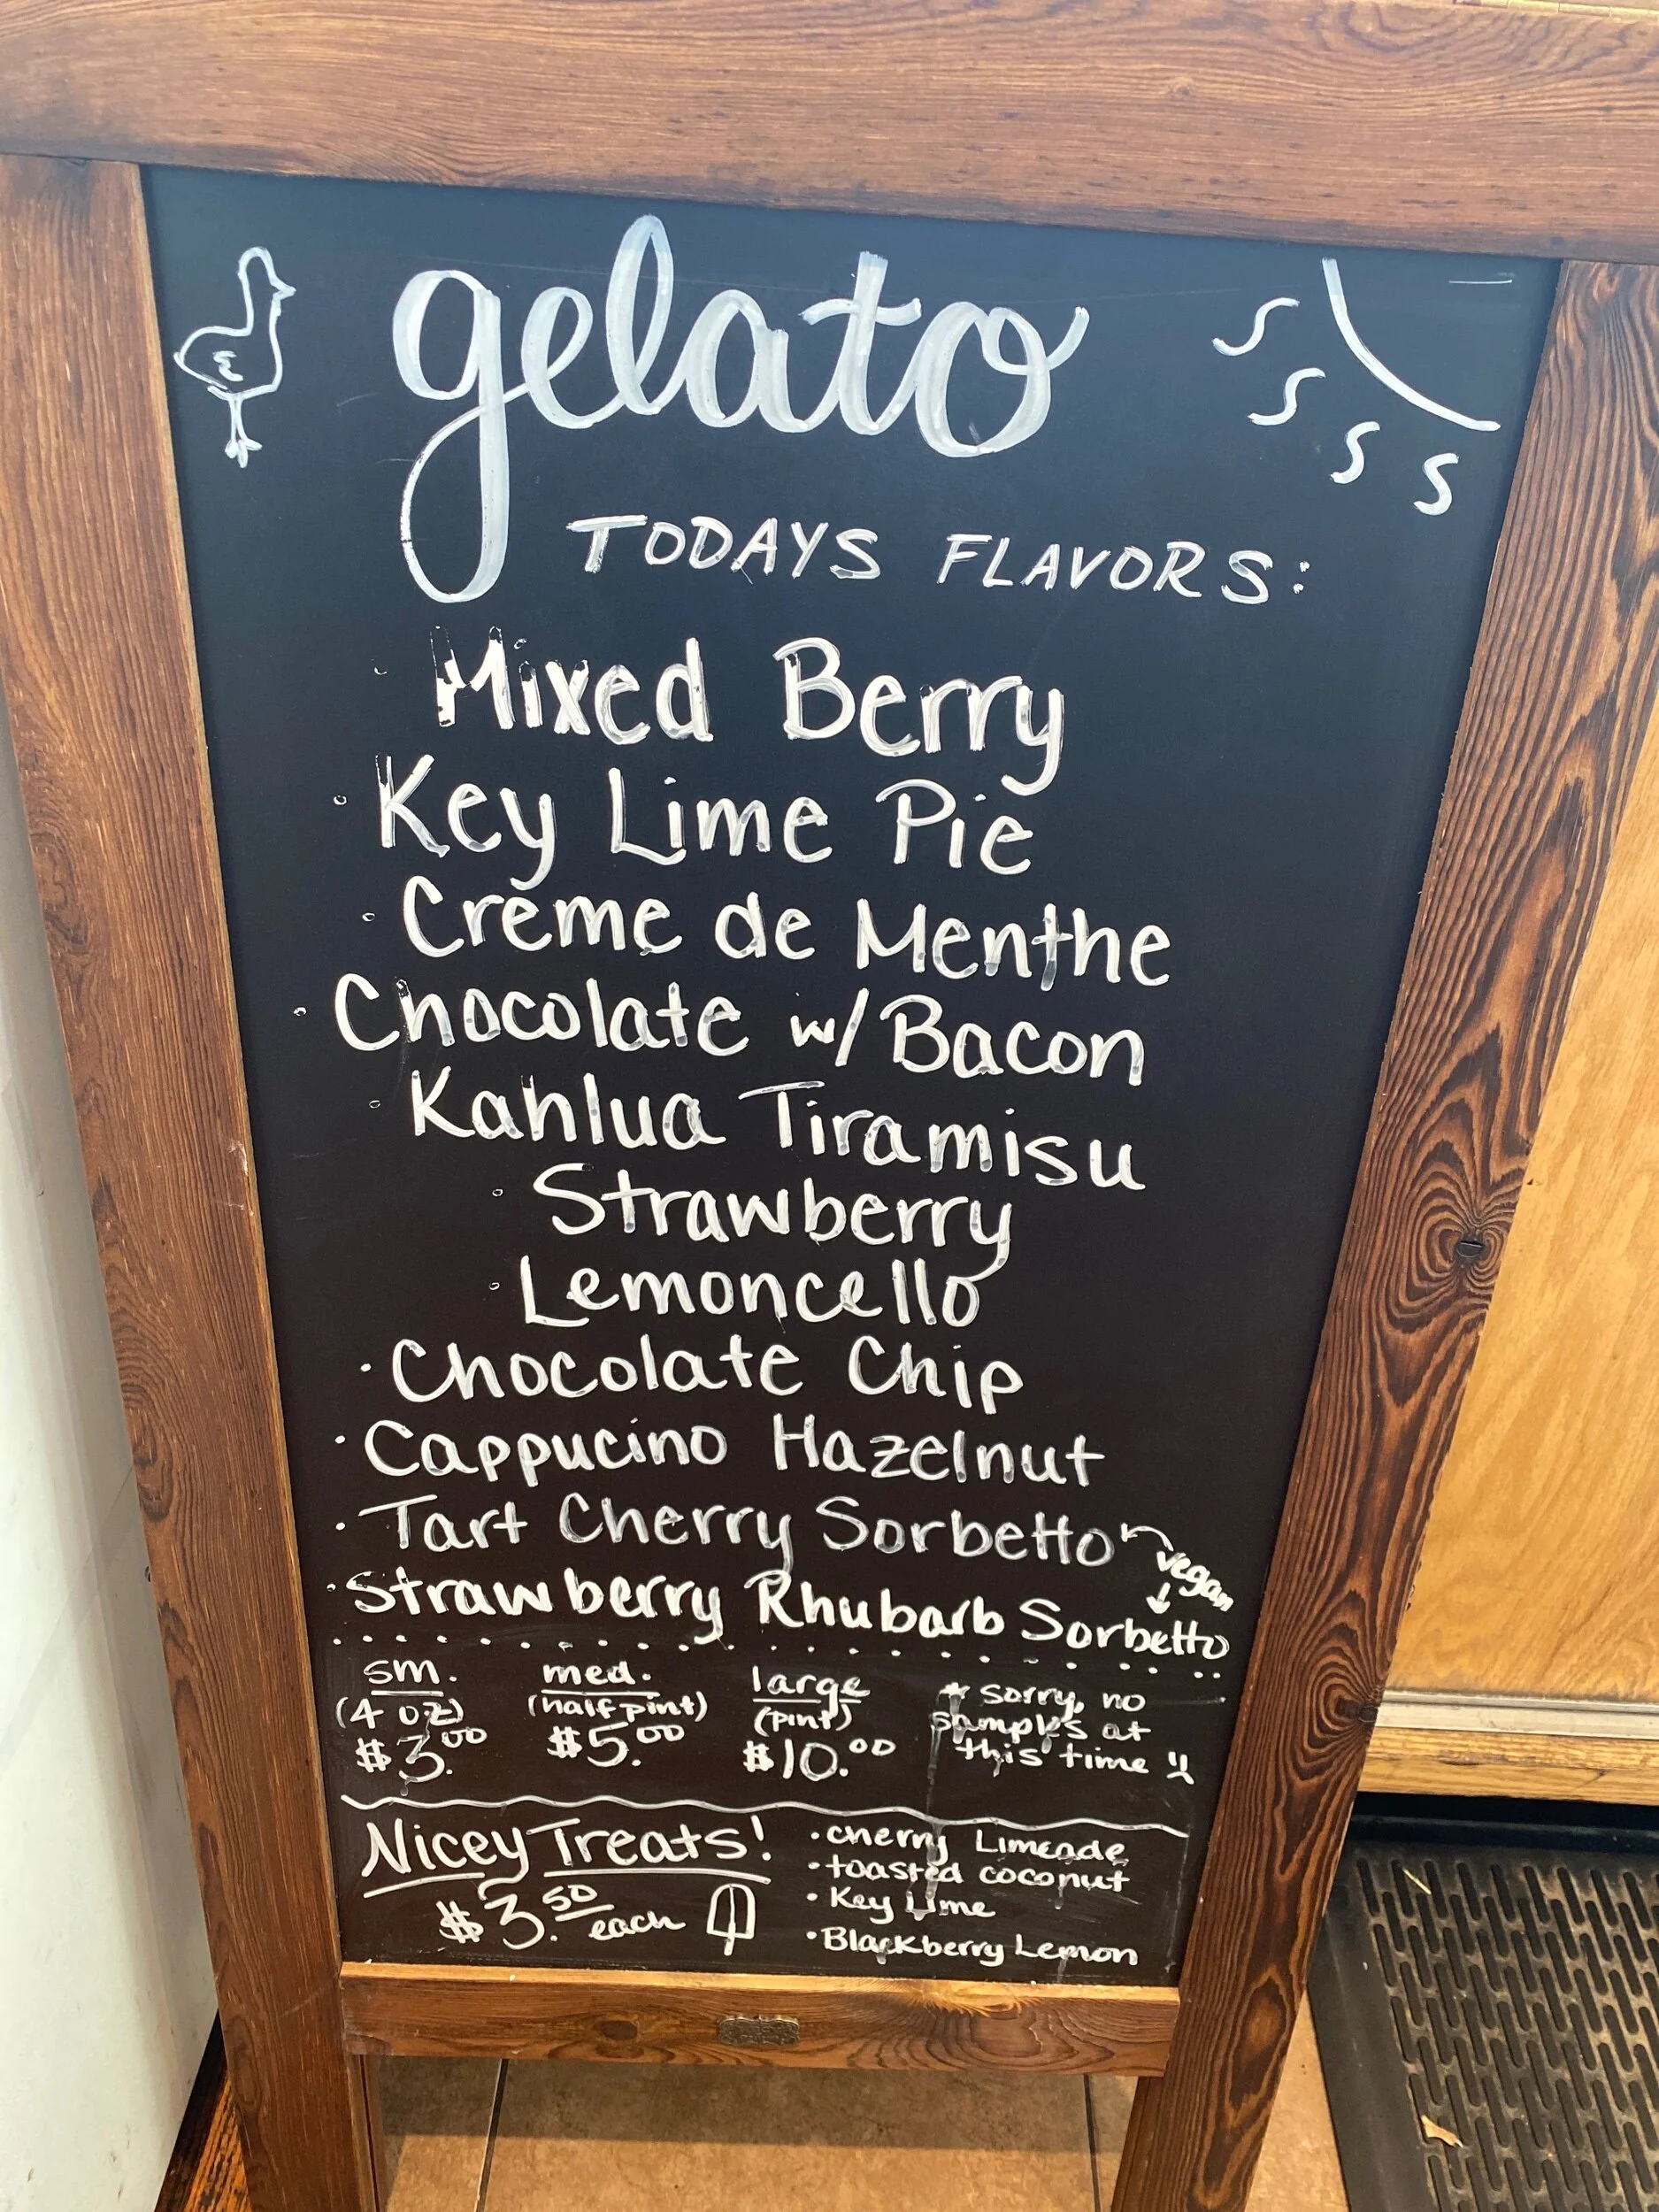 gelato
TODAYS FLAVORS:
Mixed Berry
· Key Lime Pie
· Crème de Menthe
· Chocolate w/ Bacon
· Kahlua Tiramisu
· Strawberry
· Lemoncello
· Chocolate Chip
· Cappucino Hazelnut
· Tart Cherry Sorbetto
vegan
· Strawberry Rhubarb Sorbetto
sm. med. large
(4 oz) (half pint) (pint)
$3.00 $5.00 $10.00
* sorry, no
samples at
this time
Nicey Treats!
$3.50 each
· cherry Limeade
· toasted coconut
· Key Lime
· Blackberry Lemon